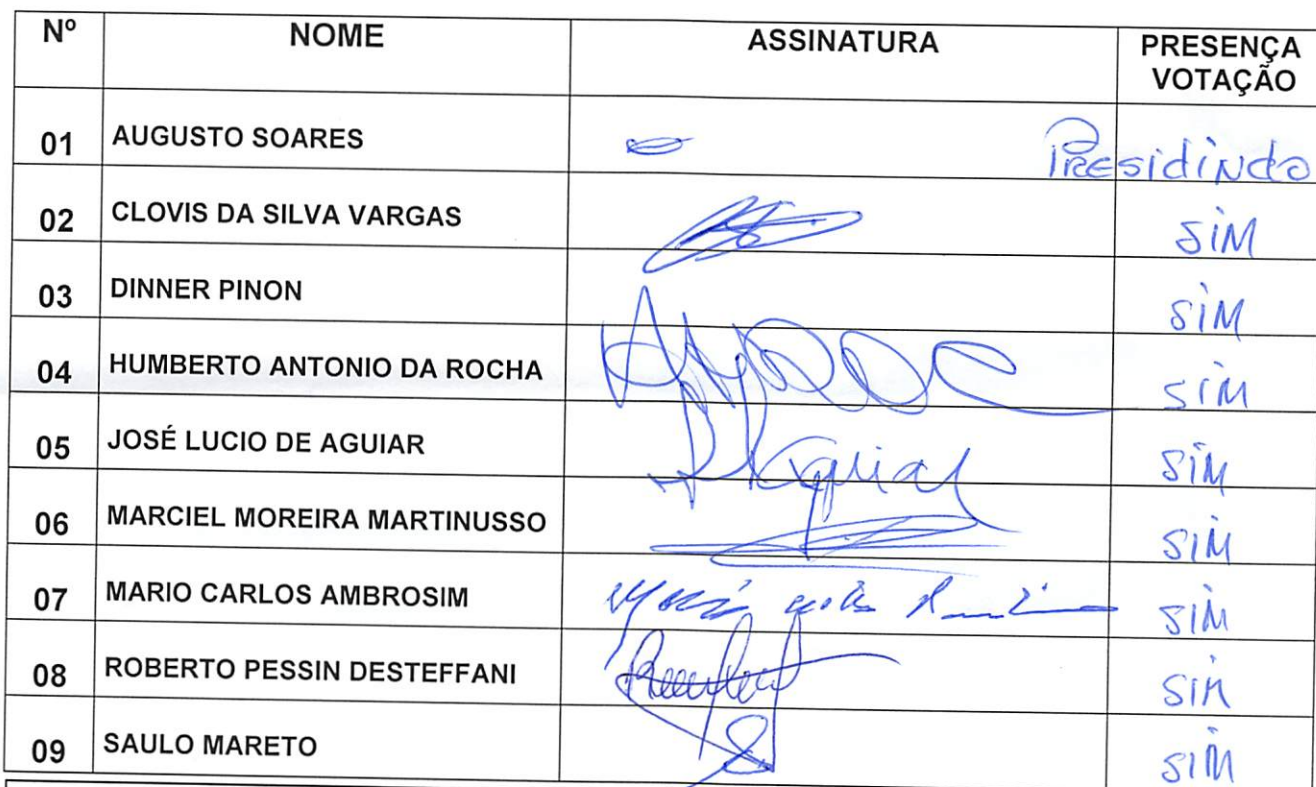 Nº NOME ASSINATURA PRESENÇA VOTAÇÃO
01 AUGUSTO SOARES Presidindo
02 CLOVIS DA SILVA VARGAS SIM
03 DINNER PINON SIM
04 HUMBERTO ANTONIO DA ROCHA SIM
05 JOSÉ LUCIO DE AGUIAR Aguiar SIM
06 MARCIEL MOREIRA MARTINUSSO SIM
07 MARIO CARLOS AMBROSIM SIM
08 ROBERTO PESSIN DESTEFFANI SIM
09 SAULO MARETO SIM